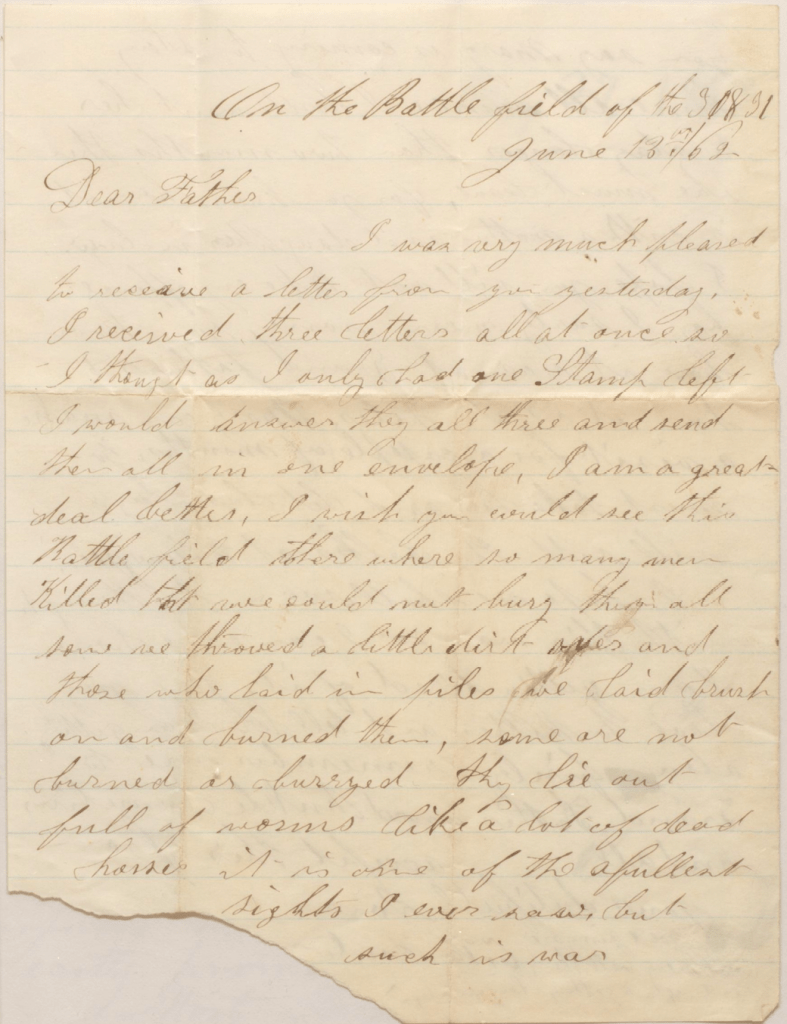 On the Battle field of the 31 & 31
June 13th/62
Dear Father
I was very much pleased
to receaive a letter from you yesterday.
I received three letters all at once so
I thougt as I only had one Stamp left
I would answer they all three and send
them all in one envelope, I am a great
deal better, I wish you could see this
Battle field there where so many men
Killed tht we could not bury them all
some we throwed a little dirt over and
those who laid in piles we laid brush
on and burned them, some are not
burned or burryed thy lie out
full of worms like a lot of dead
horses it is one of the afullest
sights I ever saw, but
such is war